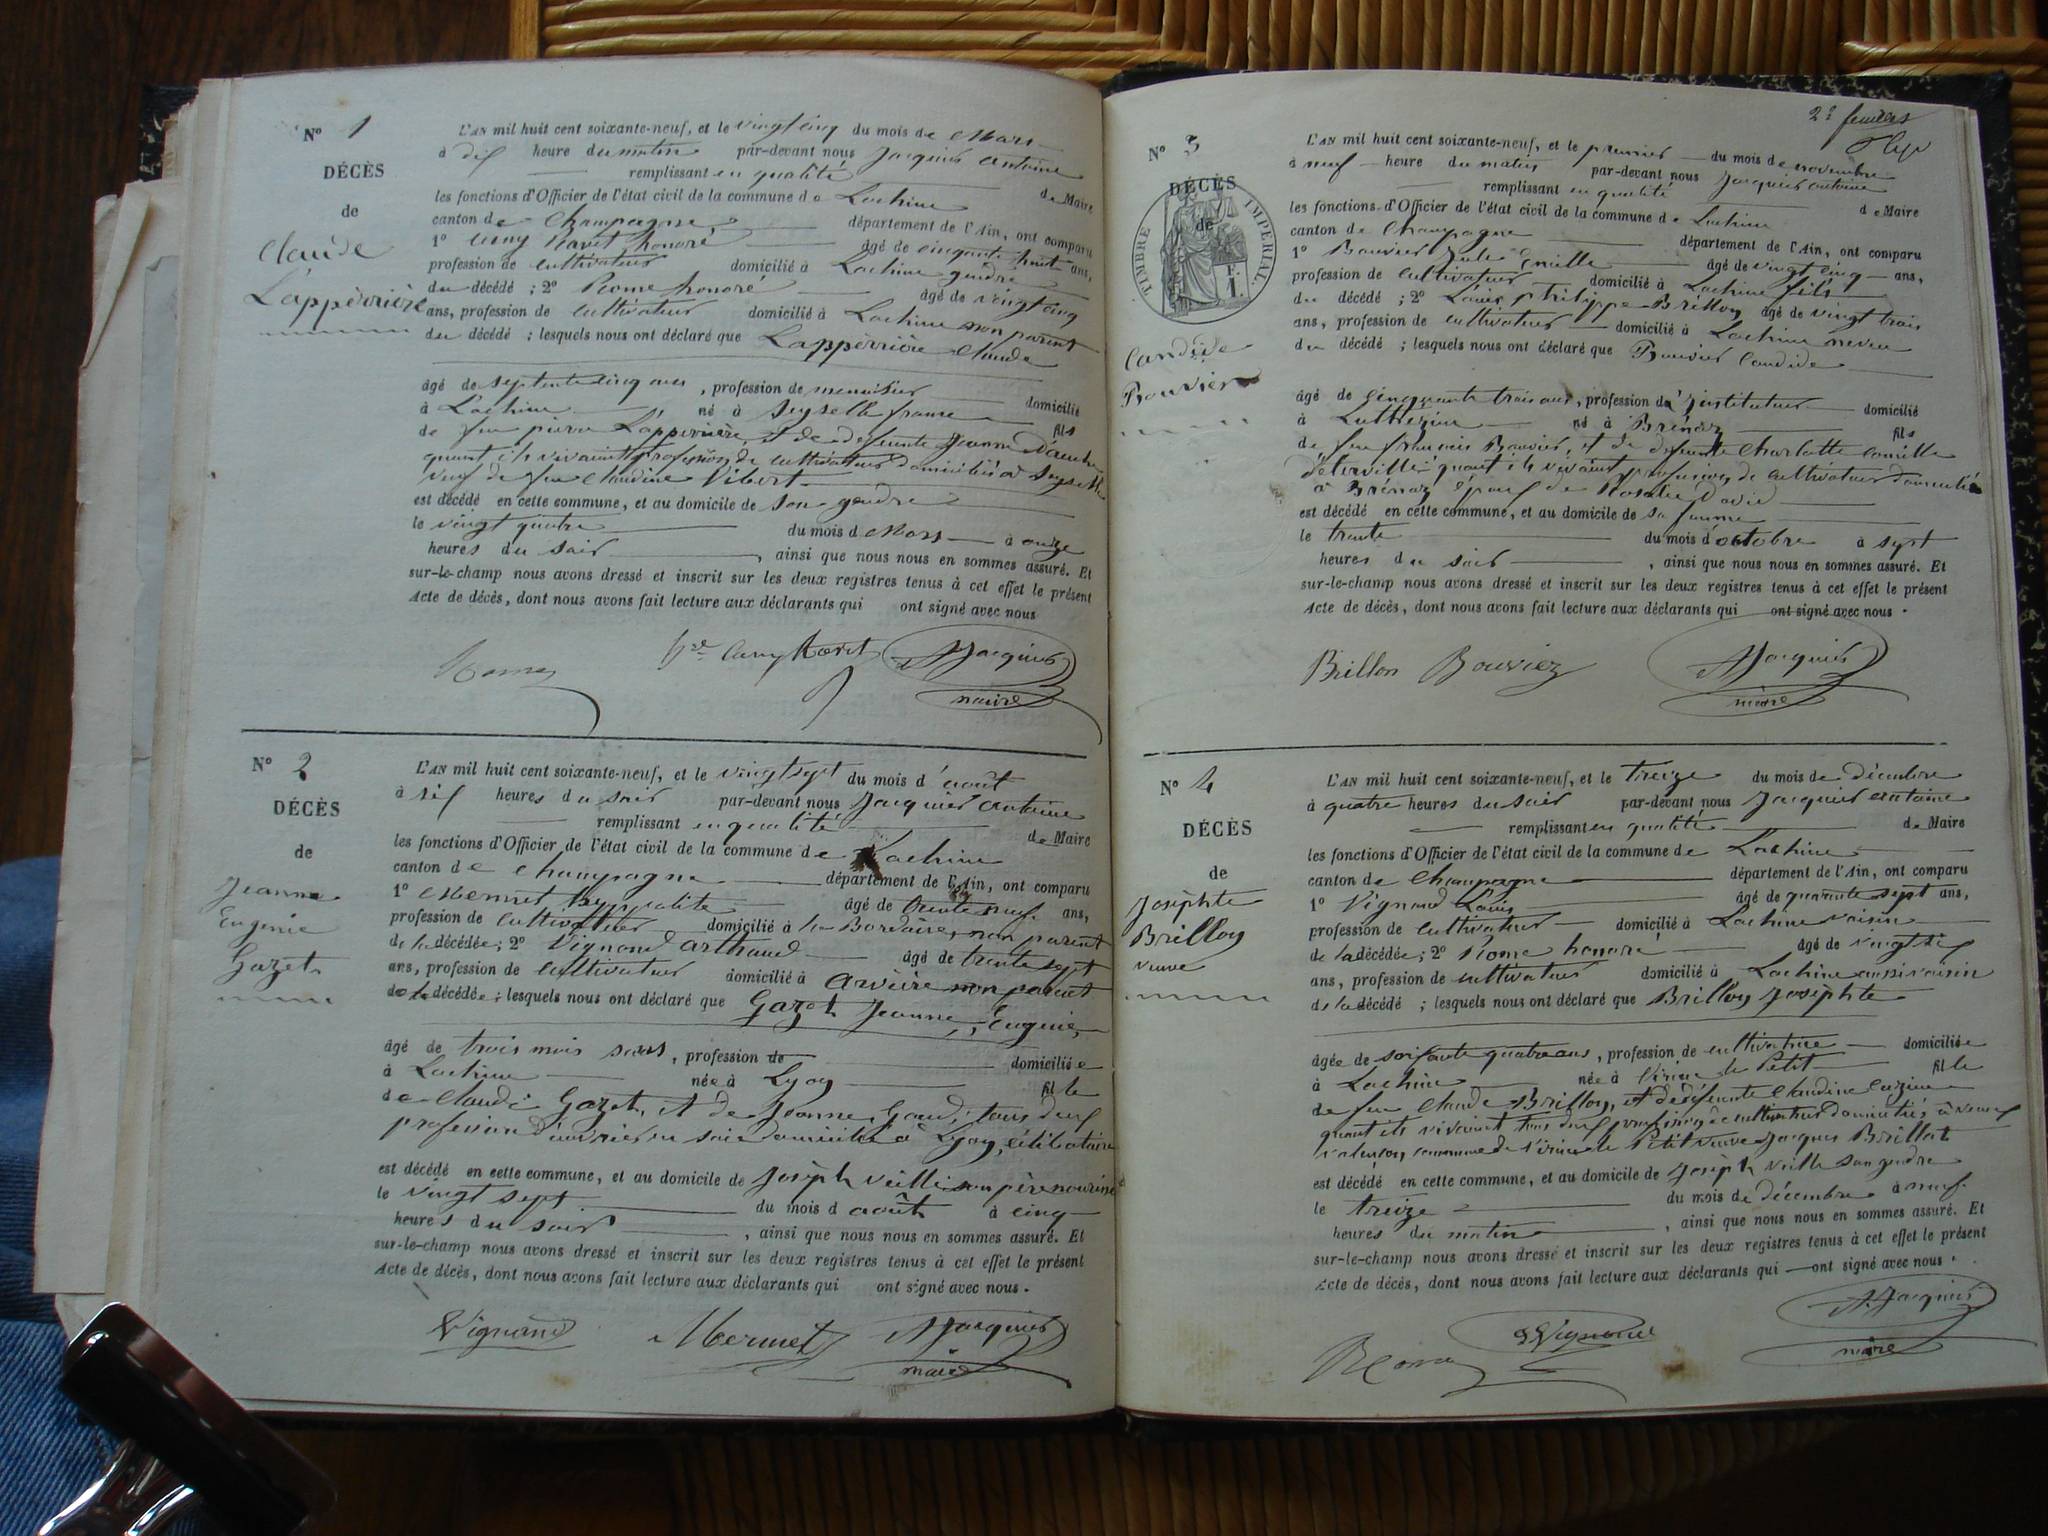 N° 1
DÉCÈS
de
Claude
Lapperrière
L'AN mil huit cent soixante-neuf, et le vingt cinq du mois de Mars
à dix heure du matin par-devant nous Jacquier antoine
remplissant en qualité de Maire
les fonctions d'Officier de l'état civil de la commune de Lochieu
canton de Champagne département de l'Ain, ont comparu
1° honoré âgé de cinquante huit ans,
profession de cultivateur domicilié à Lochieu gendre
du décédé ; 2° Rome honoré âgé de vingt cinq
ans, profession de cultivateur domicilié à Lochieu non parent
du décédé ; lesquels nous ont déclaré que Lapperrière Claude
âgé de septente cinq ans, profession de menuisier domicilié
à Lochieu né à Seyselle france fils
de feu pierre Lapperrière, et de defeunte Jeanne
quant ils vivaint profession de cultivateur domiciliés à Seyselle
veuf de feu Claudine Vibert
est décédé en cette commune, et au domicile de son gendre
le vingt quatre du mois d Mars à onze
heures du soir, ainsi que nous nous en sommes assuré. Et
sur-le-champ nous avons dressé et inscrit sur les deux registres tenus à cet effet le présent
Acte de décès, dont nous avons fait lecture aux déclarants qui ont signé avec nous
Rome AJacquier
maire
N° 2
DÉCÈS
de
Jeanne
Eugénie
Gazet
L'AN mil huit cent soixante-neuf, et le vingt sept du mois d'août
à six heures du soir par-devant nous Jacquier antoine
remplissant en qualité de Maire
les fonctions d'Officier de l'état civil de la commune de Lochieu
canton de Champagne département de l'Ain, ont comparu
1° Mermet hyppolite âgé de trente neuf ans,
profession de cultivateur domicilié à la Bordaire, non parent
de la décédée ; 2° Vignand arthaud âgé de trente sept
ans, profession de cultivateur domicilié à arvière non parent
de la décédée ; lesquels nous ont déclaré que Gazet Jeanne, Eugénie,
âgé de trois mois sans, profession de domiciliée
à Lochieu née à Lyon fille
de Claude Gazet, et de Jeanne Gaudi tous deux
profession d'ouvrier en soie domiciliés à Lyon, célibataire
est décédé en cette commune, et au domicile de Josèph veille son père nourricié
le vingt sept du mois d août à cinq
heures du soir, ainsi que nous nous en sommes assuré. Et
sur-le-champ nous avons dressé et inscrit sur les deux registres tenus à cet effet le présent
Acte de décès, dont nous avons fait lecture aux déclarants qui ont signé avec nous.
Vignand Mermet AJacquier
maire
2e feuillets
N° 3
DÉCÈS
de
TIMBRE IMPÉRIAL
Candide
Bouvier
L'AN mil huit cent soixante-neuf, et le premier du mois de novembre
à neuf heure du matin par-devant nous Jacquier antoine
remplissant en qualité de Maire
les fonctions d'Officier de l'état civil de la commune de Lochieu
canton de Champagne département de l'Ain, ont comparu
1° Bouvier Jule Camille âgé de vingt cinq ans,
profession de cultivateur domicilié à Lochieu fils
du décédé ; 2° Louis Philippe Brillon âgé de vingt trois
ans, profession de cultivateur domicilié à Lochieu neveu
du décédé ; lesquels nous ont déclaré que Bouvier Candide
âgé de cinquante trois ans, profession de l'Instituteur domicilié
à Luthézieu né à Brénaz fils
de feu françois Bouvier, et de defeunte Charlotte Camille
quant ils vivaint profession de cultivateurs domiciliés
à Brénaz époux de Rosalie David
est décédé en cette commune, et au domicile de sa femme
le trente du mois d'octobre à sept
heures du soir, ainsi que nous nous en sommes assuré. Et
sur-le-champ nous avons dressé et inscrit sur les deux registres tenus à cet effet le présent
Acte de décès, dont nous avons fait lecture aux déclarants qui ont signé avec nous.
Brillon Bouvier AJacquier
maire
N° 4
DÉCÈS
de
Josèphte
Brillon
veuve
L'AN mil huit cent soixante-neuf, et le treize du mois de décembre
à quatre heures du soir par-devant nous Jacquier antoine
remplissant en qualité de Maire
les fonctions d'Officier de l'état civil de la commune de Lochieu
canton de Champagne département de l'Ain, ont comparu
1° Vignand Louis âgé de quarante sept ans,
profession de cultivateur domicilié à Lochieu voisin
de la décédée ; 2° Rome honoré âgé de vingt six
ans, profession de cultivateur domicilié à Lochieu aussi voisin
de la décédé ; lesquels nous ont déclaré que Brillon Josèphte
âgée de soixante quatre ans, profession de cultivatrice domiciliée
à Lochieu née à Virieu le Petit fille
de feu Claude Brillon, et de défeunte Claudine
quant ils vivaint tous deux profession de cultivateurs domiciliés à
commune de Virieu le Petit veuve Jacques Brillat
est décédé en cette commune, et au domicile de Josèph veille son gendre
le treize du mois de décembre à neuf
heures du matin, ainsi que nous nous en sommes assuré. Et
sur-le-champ nous avons dressé et inscrit sur les deux registres tenus à cet effet le présent
Acte de décès, dont nous avons fait lecture aux déclarants qui ont signé avec nous.
Rome Vignand A.Jacquier
maire